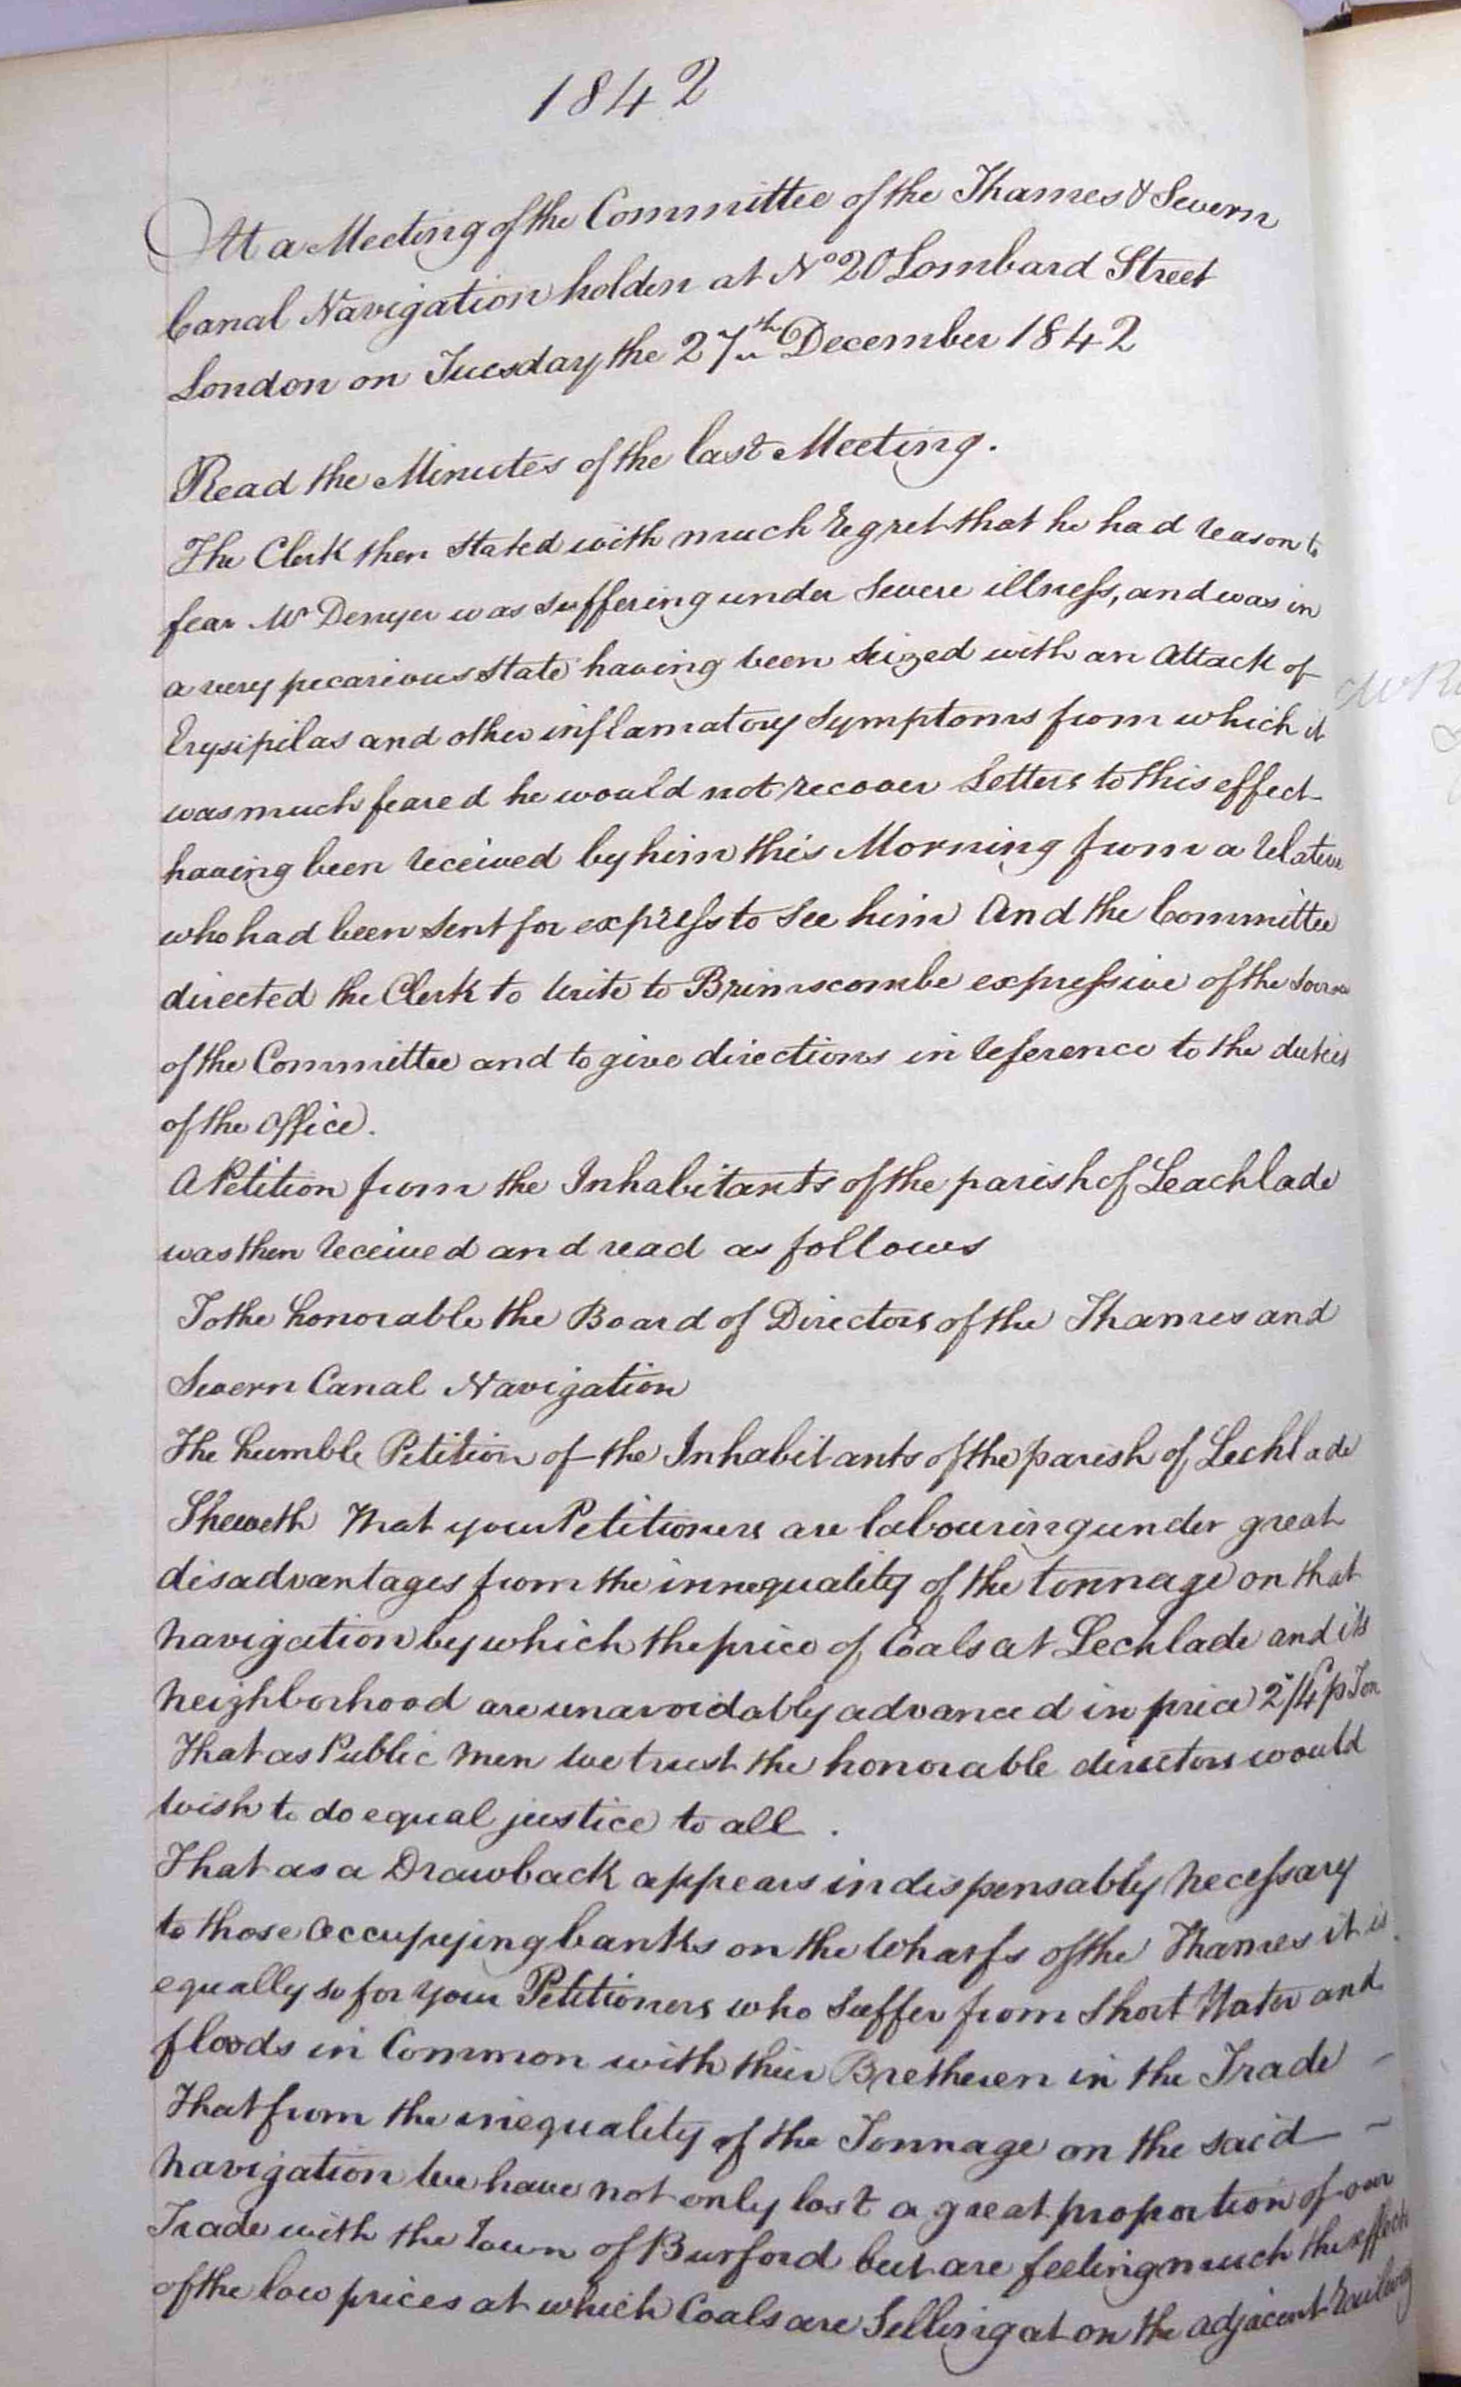 1842
At a Meeting of the Committee of the Thames & Severn
Canal Navigation holden at No 20 Lombard Street
London on Tuesday the 27th December 1842
Read the Minutes of the last Meeting.
The Clerk then Stated with much regret that he had reason to
fear Mr Denyer was suffering under Severe illness, and was in
a very pecarious State having been Seized with an Attack of
Erysipilas and other inflamatory Symptoms from which it
was much feared he would not recover Letters to this effect
having been received by him this Morning from a relative
who had been Sent for express to See him And the Committee
directed the Clerk to write to Brimscombe expressive of the Sorrow
of the Committee and to give directions in reference to the duties
of the Office.
A Petition from the Inhabitants of the parish of Leachlade
was then received and read as follows
To the honorable the Board of Directors of the Thames and
Severn Canal Navigation
The humble Petition of the Inhabitants of the parish of Lechlade
Sheweth That your Petitioners are labouring under great
disadvantages from the innequality of the tonnage on that
Navigation by which the price of Coals at Lechlade and its
Neighborhood are unavoidably advanced in price 2s/4d p Ton
That as Public Men we trust the honorable directors would
wish to do equal justice to all.
That as a Drawback appears indispensably Necessary
to those Occupying banks on the Wharfs of the Thames it is
equally so for your Petitioners who Suffer from Short Water and
floods in Common with their Bretheren in the Trade -
That from the inequality of the Tonnage on the said -
Navigation we have not only lost a great proportion of our
Trade with the Town of Burford but are feeling much the effects
of the low prices at which Coals are Selling at on the adjacent railway